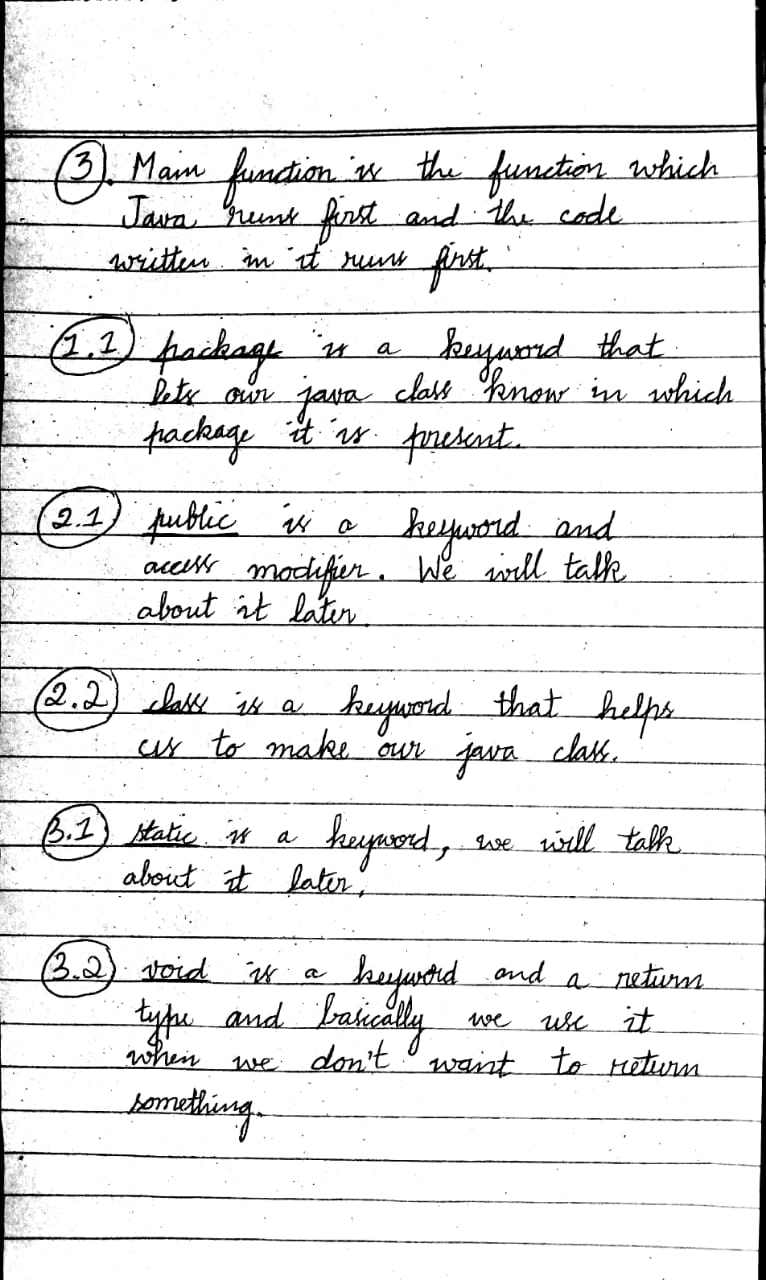 3. Main function is the function which
Java runs first and the code
written in it runs first.
1.1 package is a keyword that
lets our java class know in which
package it is present.
2.1 public is a keyword and
access modifier. We will talk
about it later.
2.2 class is a keyword that helps
us to make our java class.
3.1 static is a keyword, we will talk
about it later.
3.2 void is a keyword and a return
type and basically we use it
when we don't want to return
something.